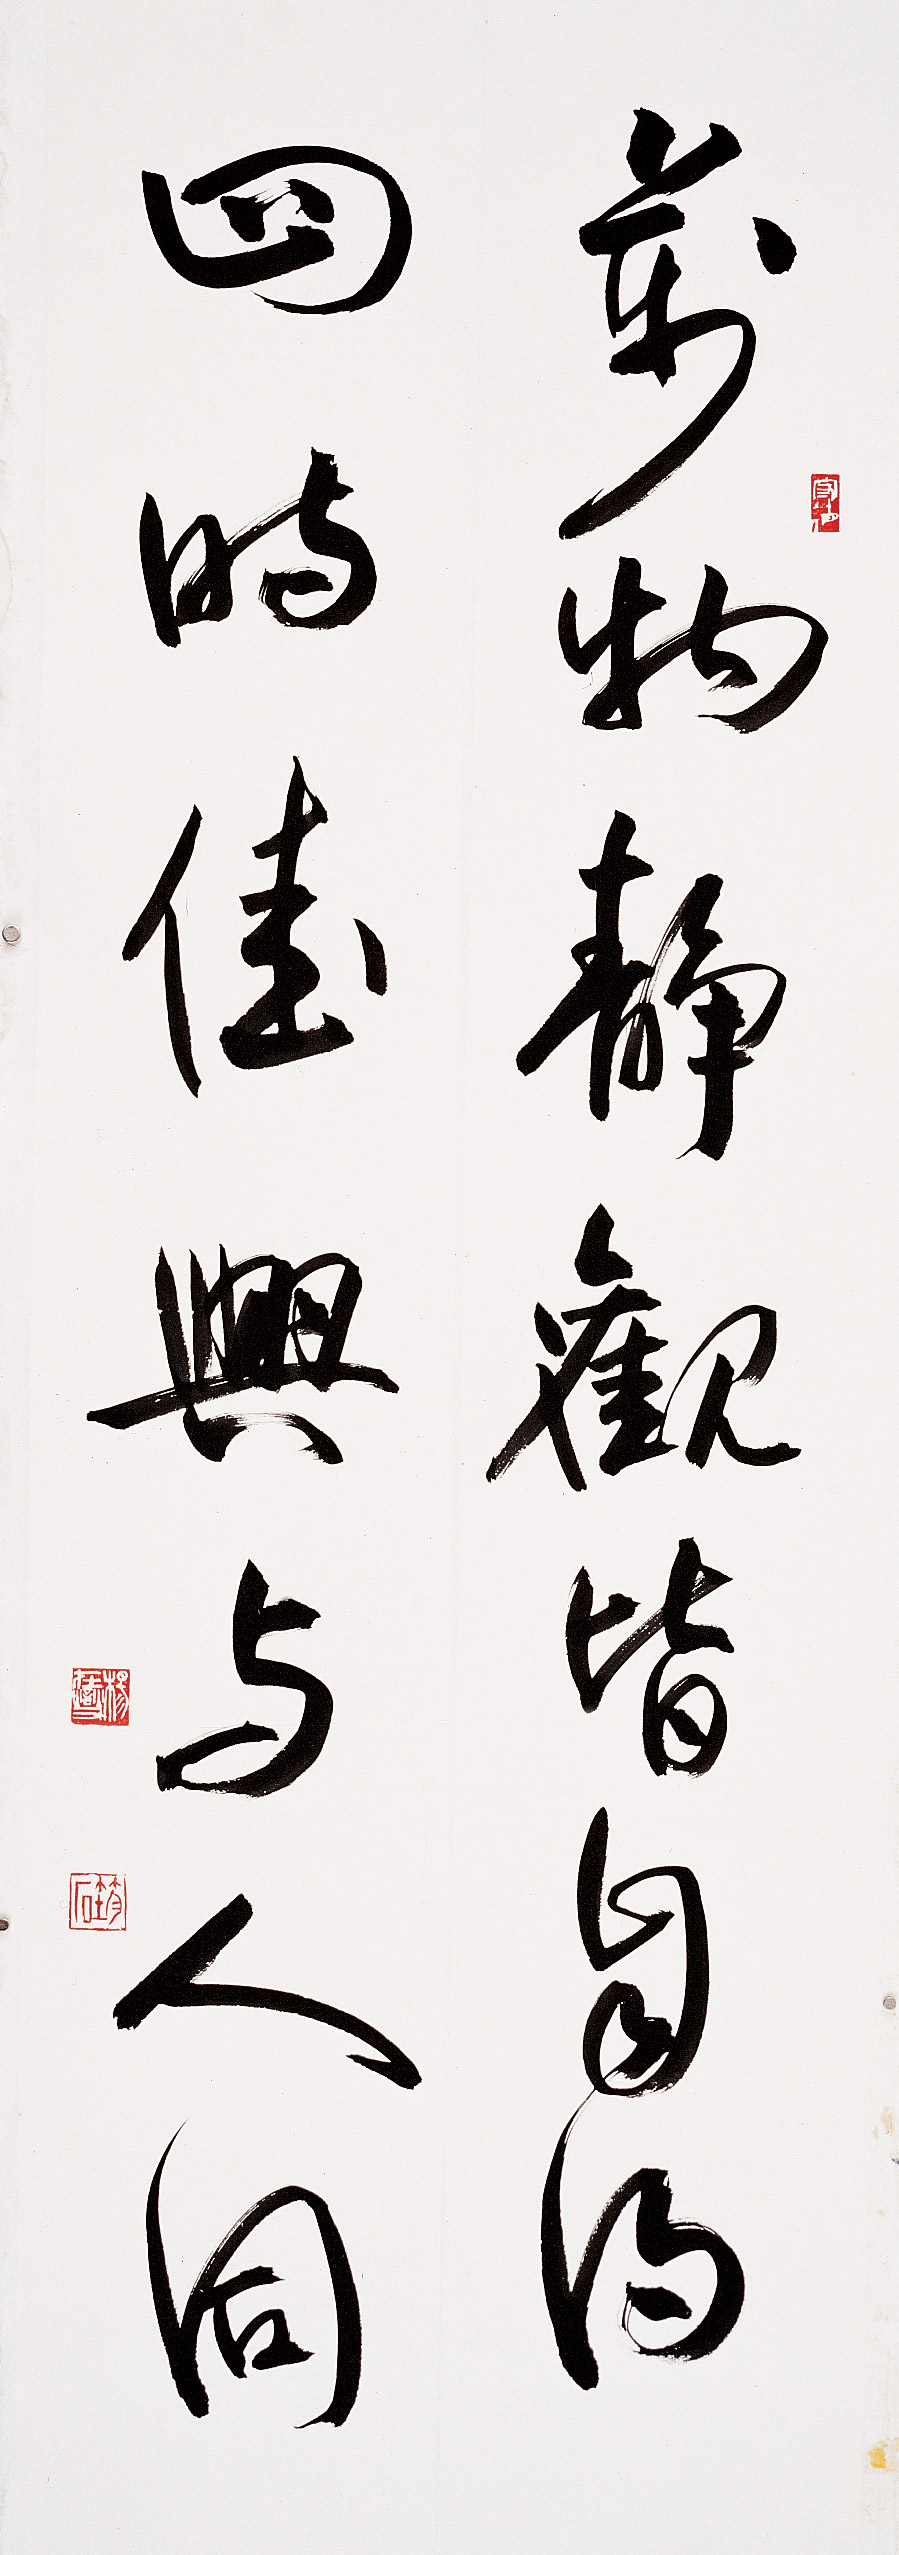 萬物靜觀皆自得
四時佳興与人同